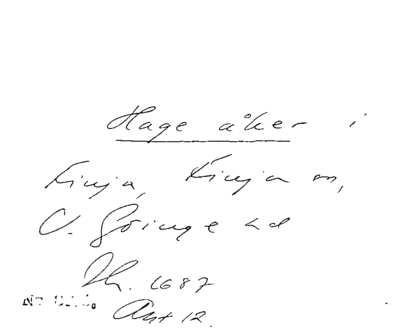 Hage åker i
Kinja, Kinja sn,
V. Göinge hd
Jh. 1687
Ant 12.